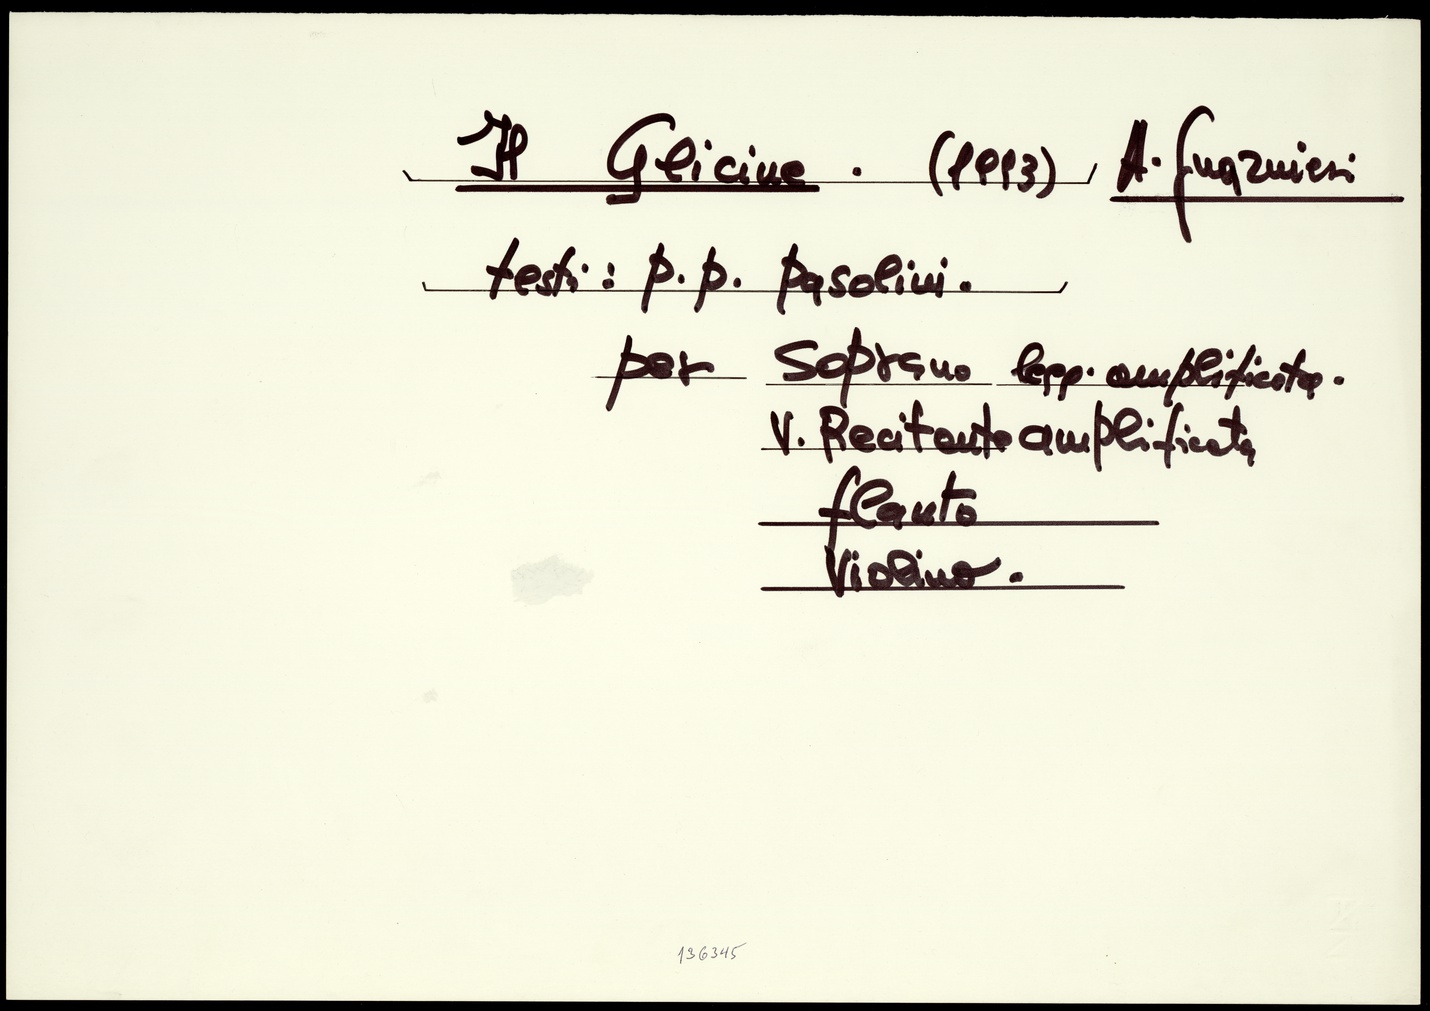 Il Glicine. (1993) A. Guarnieri
testi: p.p. pasolini.
per Soprano legg. amplificata.
V. Recitante amplificata
flauto
Violino.
136345